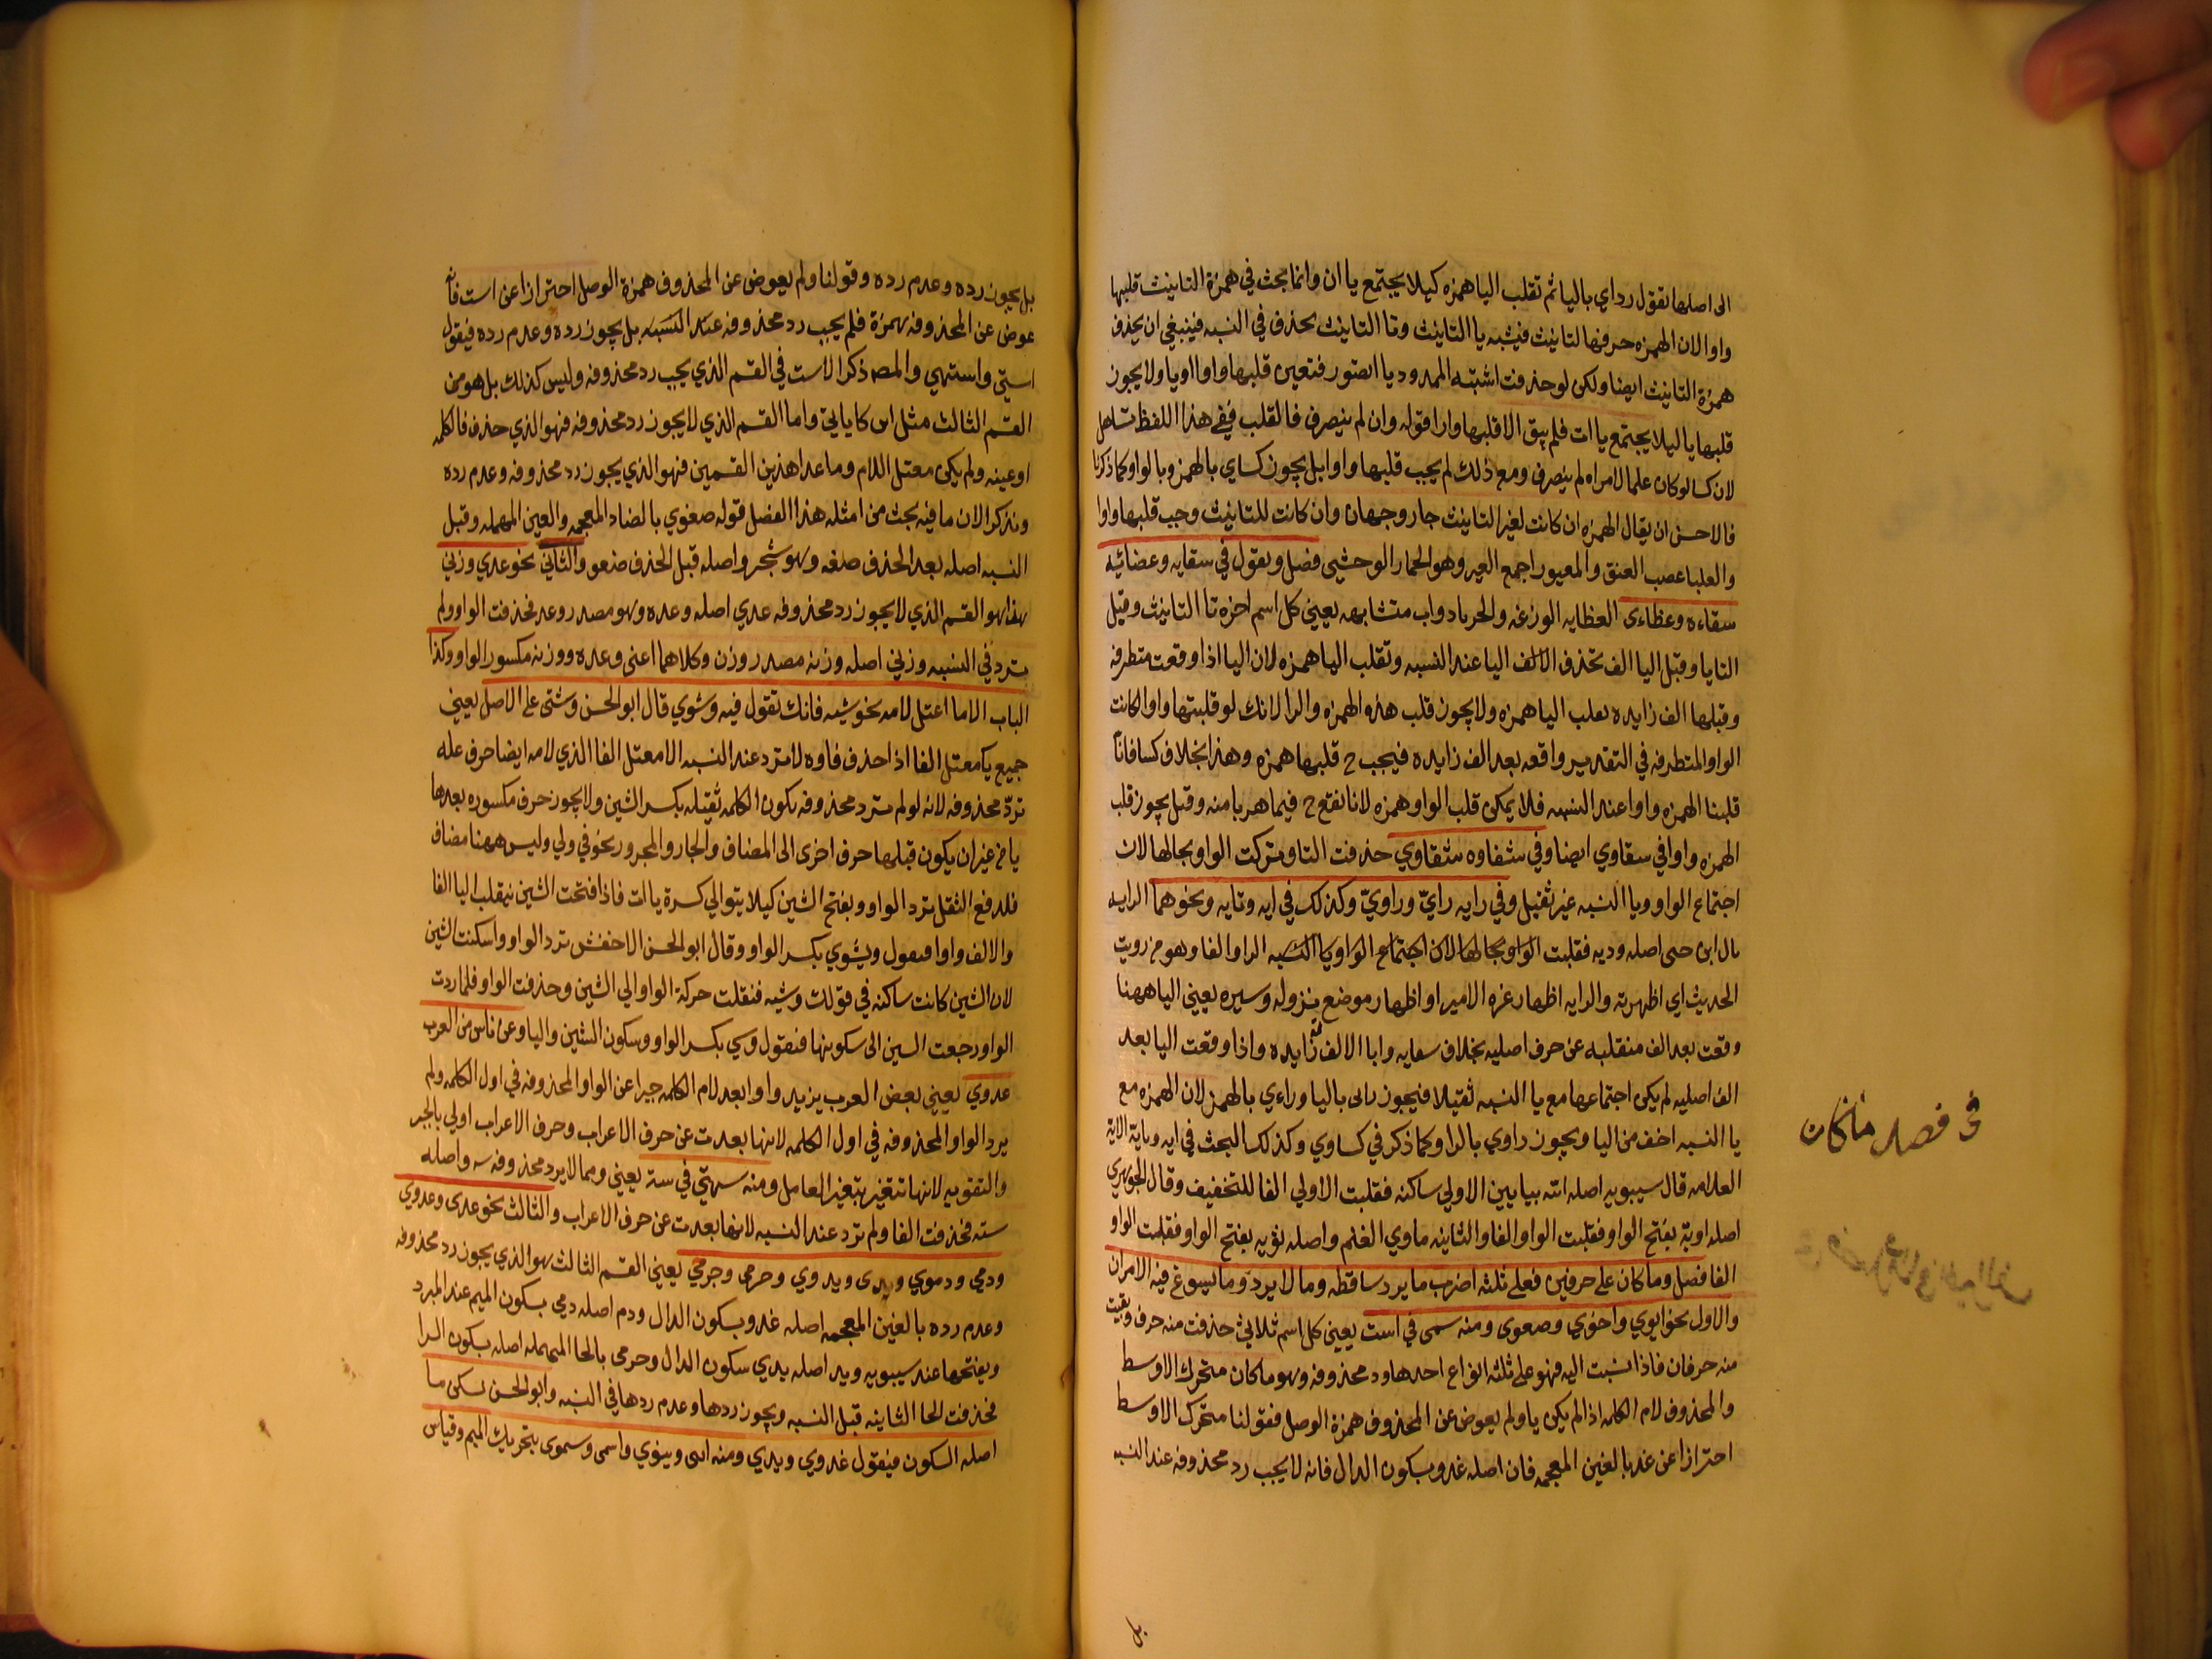 الى اصلها تقول رداي باليا ثم تقلب اليا همزه كيلا يجتمع يا ان وانما بحث في همزة التانيث قلبها
واوا لان الهمزه حرفها لتانيث فيشبه يا التانيث وتا التانيث يحذف في النسبه فينبغي ان يحذف
همزة التانيث ايضا ولكن لو حذفت اشتبه الممدود يا المقصور فتعين قلبها واوا او يا ولا يجوز
قلبها يا ليلا يجتمع يا ات فلم يبق الا قلبها واوا قوله وان لم ينصرف فالقلب ففي هذا اللفظ تساهل
لان كسا لو كان علما لامراه لم ينصرف ومع ذلك لم يجب قلبها واوا بل يجوز كساي بالهمز وبالواو كما ذكرنا
فالاحسن ان يقال الهمزه ان كانت لغير التانيث جاز وجهان وان كانت للتانيث وجب قلبها واوا
والعلبا عصب العنق والمعيورا جمع العير وهو الحمار الوحشي فصل وتقول في سقايه وعضائيه
سقاءه وعظاءى العظايه الوزغه والحربا دواب متشابهه يعني كل اسم اخره تا التانيث وقبل
التايا وقبل اليا الف تحذف الالف اليا عند النسبه وتقلب اليا همزه لان اليا اذا وقعت متطرفه
وقبلها الف زايده تقلب اليا همزه ولا يجوز قلب هذه الهمزه والرا لانك لو قلبتها واوا لكانت
الواو المتطرفه في التقدير واقعه بعد الف زايده فيجب ح قلبها همزه وهذا بخلاف كسا فانا
قلبنا الهمزه واوا عند النسبه فلا يمكن قلب الواو همزه لانا نقع ح فيما هربا منه وقبل يجوز قلب
الهمزه واوا في سقاوي ايضا وفي شقاوه شقاوي حذفت التا وتركت الواو بحالها لان
اجتماع الواو ويا النسبه غير ثقيل وفي رايه رايّ وراويّ وكذلك في ايه وتايه ونحوهما الرايه
قال ابن جنى اصله وديه فقلبت الواو بحالها لان اجتماع الواو يا النسبه الرا والفا وهو من رويت
الحديث اي اظهرته والرايه اظهار عزه الامير او اظهار موضع نزوله وسيره يعيني اليا ههنا
وقعت بعد الف منقلبه عن حرف اصليه بخلاف سقايه وابا الالف فيه زايده واذا وقعت اليا بعد
الف اصليه لم يكن اجتماعها مع يا النسبه ثقيلا فيجوز راىى باليا وراءي بالهمز لان الهمزه مع
يا النسبه اخف من اليا ويجوز راوي بالراو كما ذكر في كساوي وكذلك البحث في ايه وباية الاية
العلامه قال سيبويه اصله اته بيايين الاولي ساكنه فقلبت الاولي الفا للتخفيف وقال الجوهري
اصله اوية بفتح الواو فقلبت الواو الفا والثانيه ماوي الغنم واصله ثويه بفتح الواو فقلبت الواو
الفا فصل وما كان علي حرفين فعلي ثلثه اضرب ما يرد ساقطه وما لا يرد وما يسوغ فيه الامران
والاول نحو ابوي واخوي وضعوى ومنه سهى في است يعيني كل اسم ثلاثي حذفت منه حرف وبقيت
منه حرفان فاذا نسبت اليه فهو علي ثلثه انواع احدها ود محذوفه وهو ما كان متحرك الاوسط
والمحذوف لام الكلمه اذ لم يكن يا ولم يعوض عن المحذوف همزة الوصل فقولنا متحرك الاوسط
احترازا عن غد بالغين المعجمه فان اصله غدو بسكون الدال فانه لا يجب رد محذوفه عند النسبه
بل
في فصل ماكان
بل يجوز رده وعدم رده وقولنا ولم يعوض عن المحذوف همزة الوصل احترازا عن است فانه
عوض عن المحذوفه بهمزة فلم يجب رد محذوفه عند النسبه بل يجوز رده وعدم رده فيقول
استي واستهي والمصـ ذكر الاست في القسم الذي يجب رد محذوفه وليس كذلك بل هو من
القسم الثالث مثل اس كا ياتي واما القسم الذي لا يجوز رد محذوفه فهو الذي حذف فا الكلمه
او عينه ولم يكن معتل اللام وما عدا هذين القسمين فهو الذي يجوز رد محذوفه وعدم رده
ونذكر الان ما فيه بحث من امثله هذا الفصل قوله ضغوي بالضاد المعجمه والعين المهمله وقبل
النسبه اصله بعد الحذف ضعه وهو شجر واصله قبل الحذف ضعو والثاني نحو عدي وزني
هذا هو القسم الذي لا يجوز رد محذوفه عدي اصله وعده وهو مصدر وعد فحذفت الواو ولم
ترد في النسبه وزني اصله وزنه مصدر وزن وكلاهما اعني وعده ووزنه مكسور الواو وكذا
الباب الا ما اعتل لامه نحو شيه فانك تقول فيه وشوي قال ابو الحسن وشتى على الاصل يعيني
جميع يا معتل الفا اذا حذف فاوه لا ترد عند النسبه الا معتل الفا الذي لامه ايضا حرف عله
تردّ محذوفه لانه لو لم ترد محذوفه يكون الكلمه ثقيله بكسر الشين ولا يجوز حرف مكسوره بعدها
يا من غير ان يكون قبلها حرف اخرى الى المضاف والجار والمجرور نحو في ولي وليس ههنا مضاف
فلدفع الثقل ترد الواو وبفتح الشين كيلا يتوالي كسرة يا ات فاذا فتحت الشين تقلب اليا الفا
والالف واوا فتقول ويشوي بكسر الواو وقال ابو الحسن الاخفش ترد الواو واسكنت الشين
لان الشين كانت ساكنه في قولك وشيه فنقلت حركة الواو الي الشين وحذفت الواو فلما ردت
الواو رجعت السين الى سكونها فتقول وسي بكسر الواو وسكون الشين واليا وعن ناس من العرب
عدوي يعيني بعض العرب يزيد واوا بعد لام الكلمه جبرا عن الواو المحذوفه في اول الكلمه ولم
يرد الواو المحذوفه في اول الكلمه لانها بعدت عن حرف الاعراب وحرف الاعراب اولي بالجبر
والتقويه لانها تتغير بتغير العامل ومنه سهتي في سته يعيني ومما لا يرد محذوفه سه واصله
سته فحذفت الفا ولم ترد عند النسبه لانها بعدت عن حرف الاعراب والثالث نحو غدى وغدوي
ودمي ودموي ويدى ويدوي وحرمى وجرحي يعيني القسم الثالث هو الذي يجوز رد محذوفه
وعدم رده بالغين المعجمه اصله غدو بسكون الدال ودم اصله دمي بسكون الميم عند المبرد
وبفتحها عند سيبويه ويد اصله يدي سكون الدال وحرمى بالحا المهمله اصله بسكون الرا
فحذفت الحا الثانيه قبل النسبه ويجوز ردها وعدم ردها في النسبه وابو الحسن يسكن ما
اصله السكون فيقول غدوي ويديي ومنه ابني وبنوي واسمى وسموى بتحريك الميم وقياس